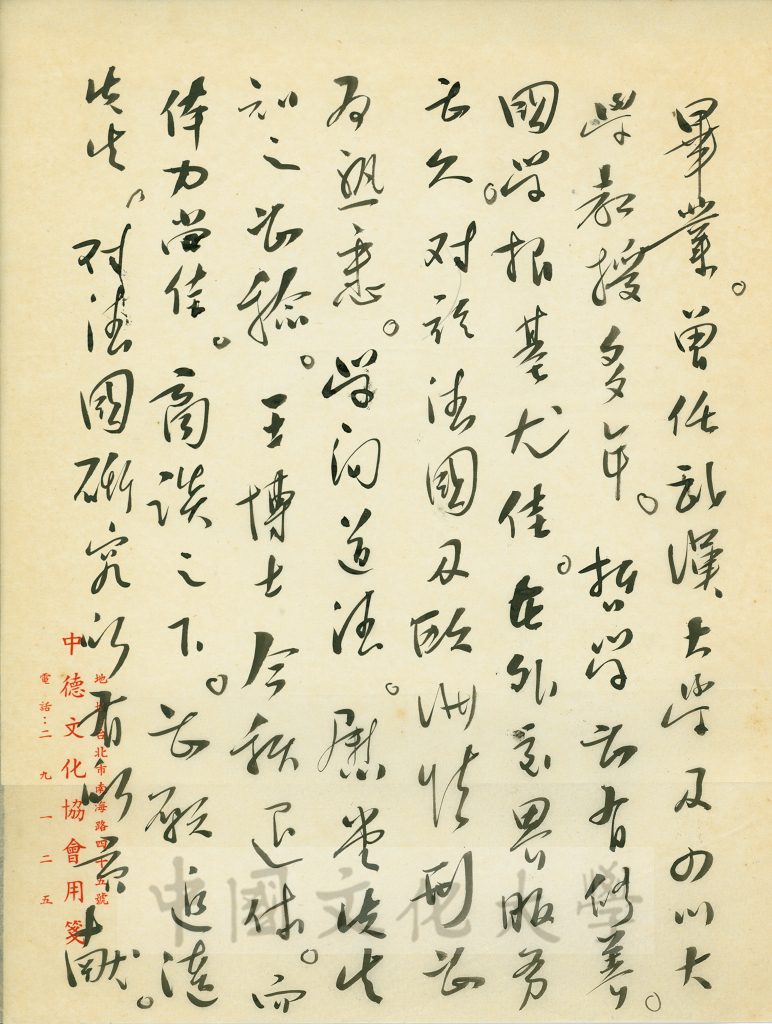 畢業。曾任武漢大學及四川大
學教授多年。哲學甚有修養。
國學根基尤佳。在外交界服務
甚久。对於法國及歐洲情形甚
为熟悉。學问道德。慰堂先生
知之甚稔。王博士今秋退休。而
体力尚佳。商談之下。甚願追隨
先生。对法國研究所有所貢獻。
地址台北市南海路四十五號
中德文化協會用箋
電話：二九一二五
中國文化大學